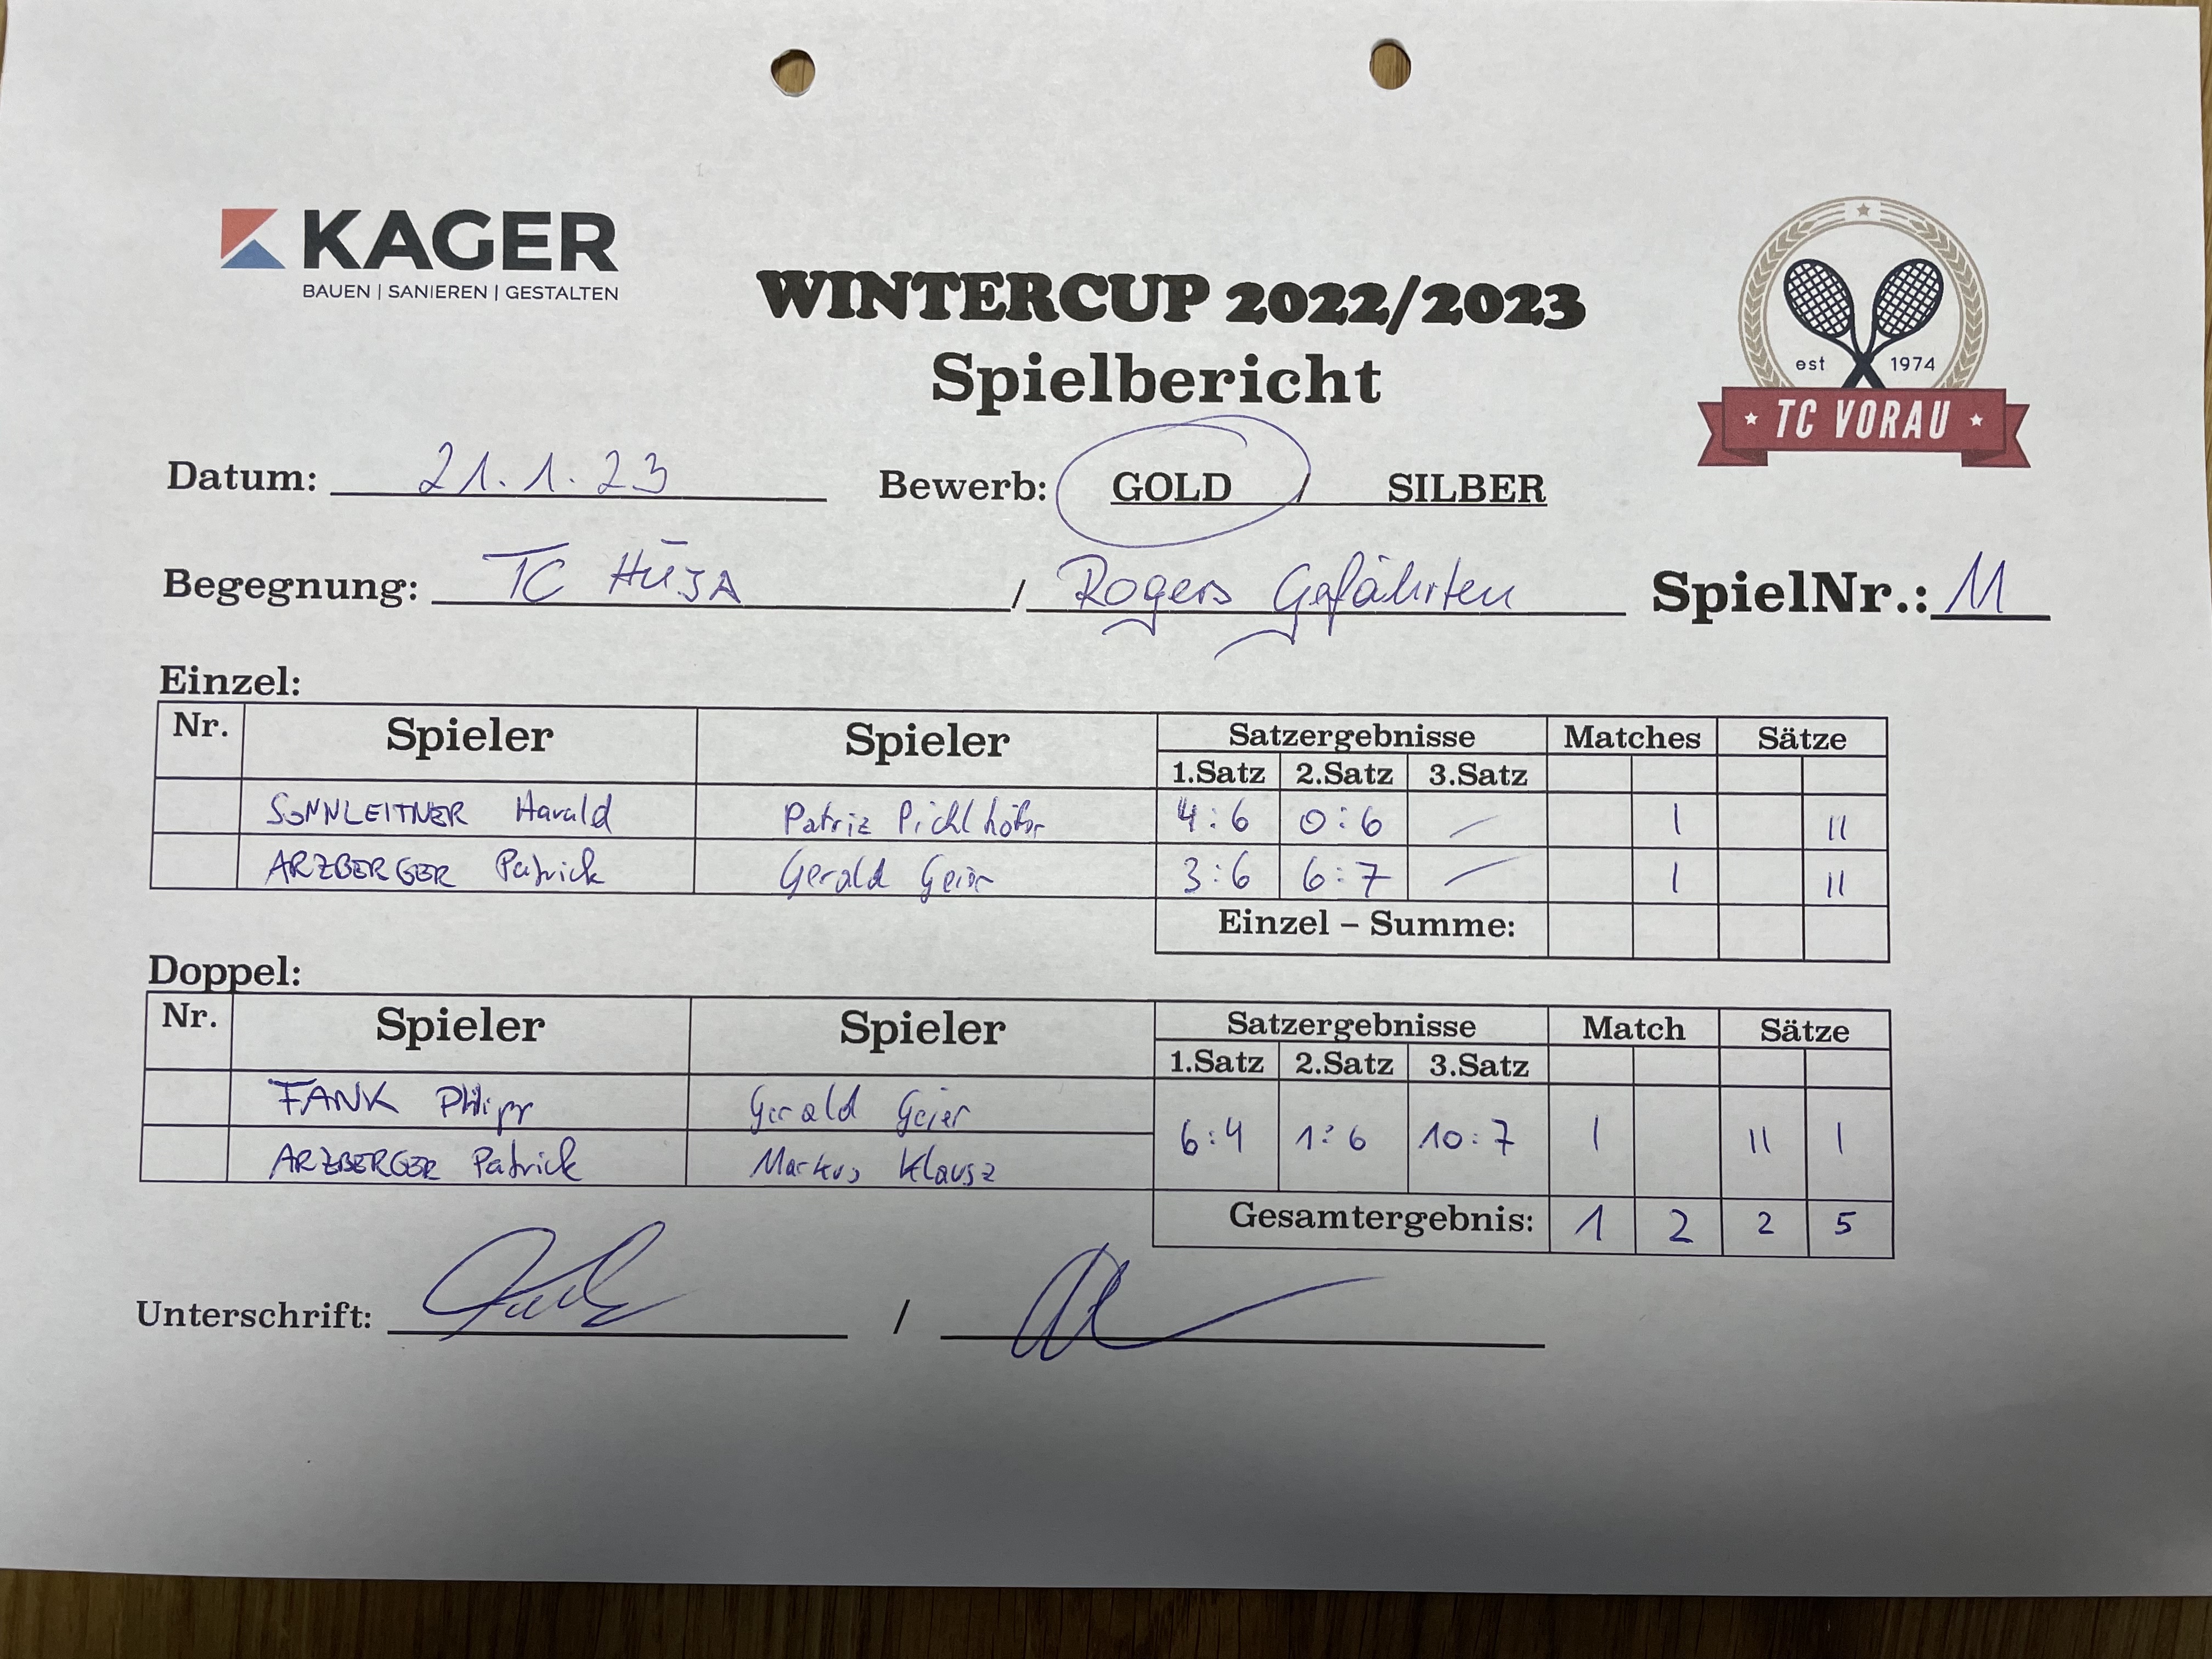 KAGER
BAUEN | SANIEREN | GESTALTEN
WINTERCUP 2022/2023
Spielbericht
est 1974
TC VORAU
Datum: 21.1.23 Bewerb: GOLD / SILBER
Begegnung: TC HÜJA / Rogers Gefährten SpielNr.: 11
Einzel:
Nr. Spieler Spieler Satzergebnisse Matches Sätze
1.Satz 2.Satz 3.Satz
SONNLEITNER Harald Patriz Pichlhöfer 4:6 0:6 / I II
ARZBERGER Patrick Gerald Geier 3:6 6:7 / I II
Einzel – Summe:
Doppel:
Nr. Spieler Spieler Satzergebnisse Match Sätze
1.Satz 2.Satz 3.Satz
FANK Philipp Gerald Geier
6:4 1:6 10:7 I II I
ARZBERGER Patrick Markus Klausz
Gesamtergebnis: 1 2 2 5
Unterschrift: /